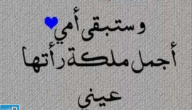 وستبقى أمي
أجمل ملكة رأتها
عيني